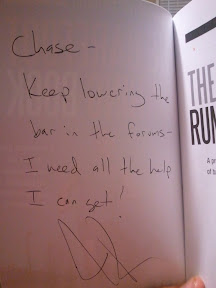 Chase -
Keep lowering the
bar in the forums -
I need all the help
I can get!
THE
RUN
A pr
of tu